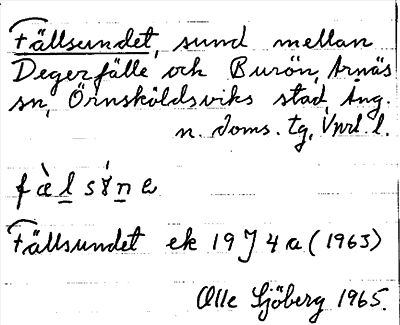 Fällsundet, sund mellan
Degerfjälle och Burön, Arnäs
sn, Örnsköldsviks stad, Ång.
n. doms. tg, Vnrl. l.
fæ̀lsɤ́nɐ
Fällsundet ek 19J4a (1963)
Olle Sjöberg 1965.